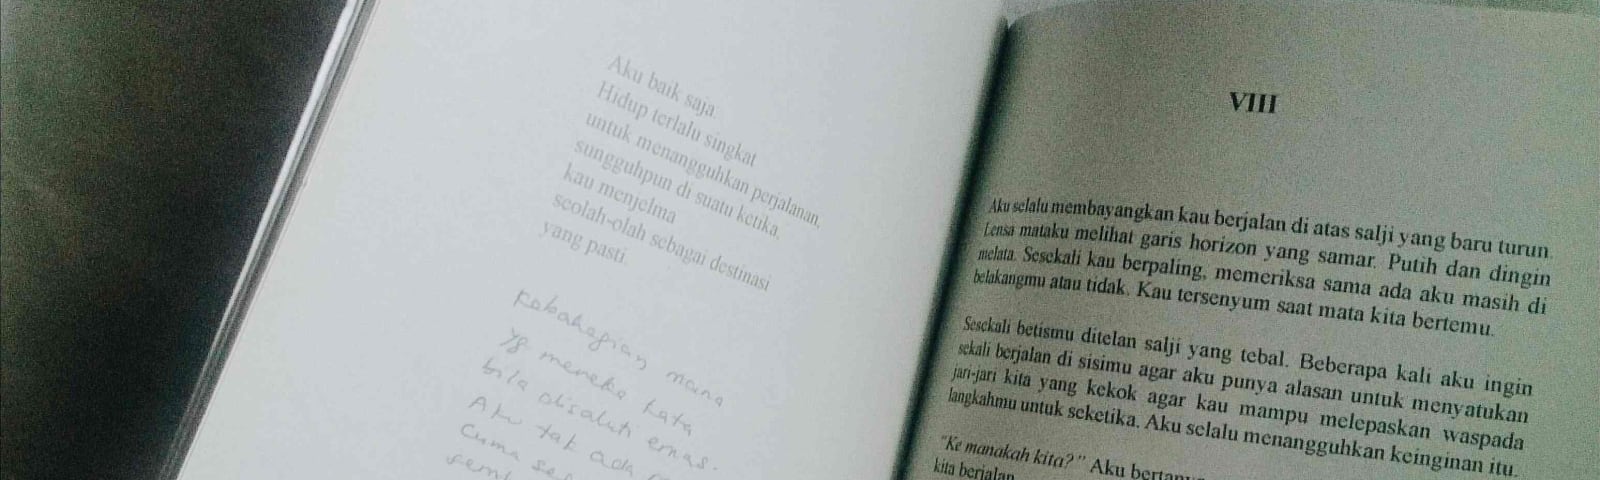 Aku baik saja.
Hidup terlalu singkat
untuk menangguhkan perjalanan,
sungguhpun di suatu ketika,
kau menjelma
seolah-olah sebagai destinasi
yang pasti.
Kebahagian mana
yg mereka kata
bila disaluti emas.
Aku tak ada
Cuma
VIII
Aku selalu membayangkan kau berjalan di atas salji yang baru turun.
Lensa mataku melihat garis horizon yang samar. Putih dan dingin
melata. Sesekali kau berpaling, memeriksa sama ada aku masih di
belakangmu atau tidak. Kau tersenyum saat mata kita bertemu.
Sesekali betismu ditelan salji yang tebal. Beberapa kali aku ingin
sekali berjalan di sisimu agar aku punya alasan untuk menyatukan
jari-jari kita yang kekok agar kau mampu melepaskan waspada
langkahmu untuk seketika. Aku selalu menangguhkan keinginan itu.
"Ke manakah kita?" Aku
kita berjalan